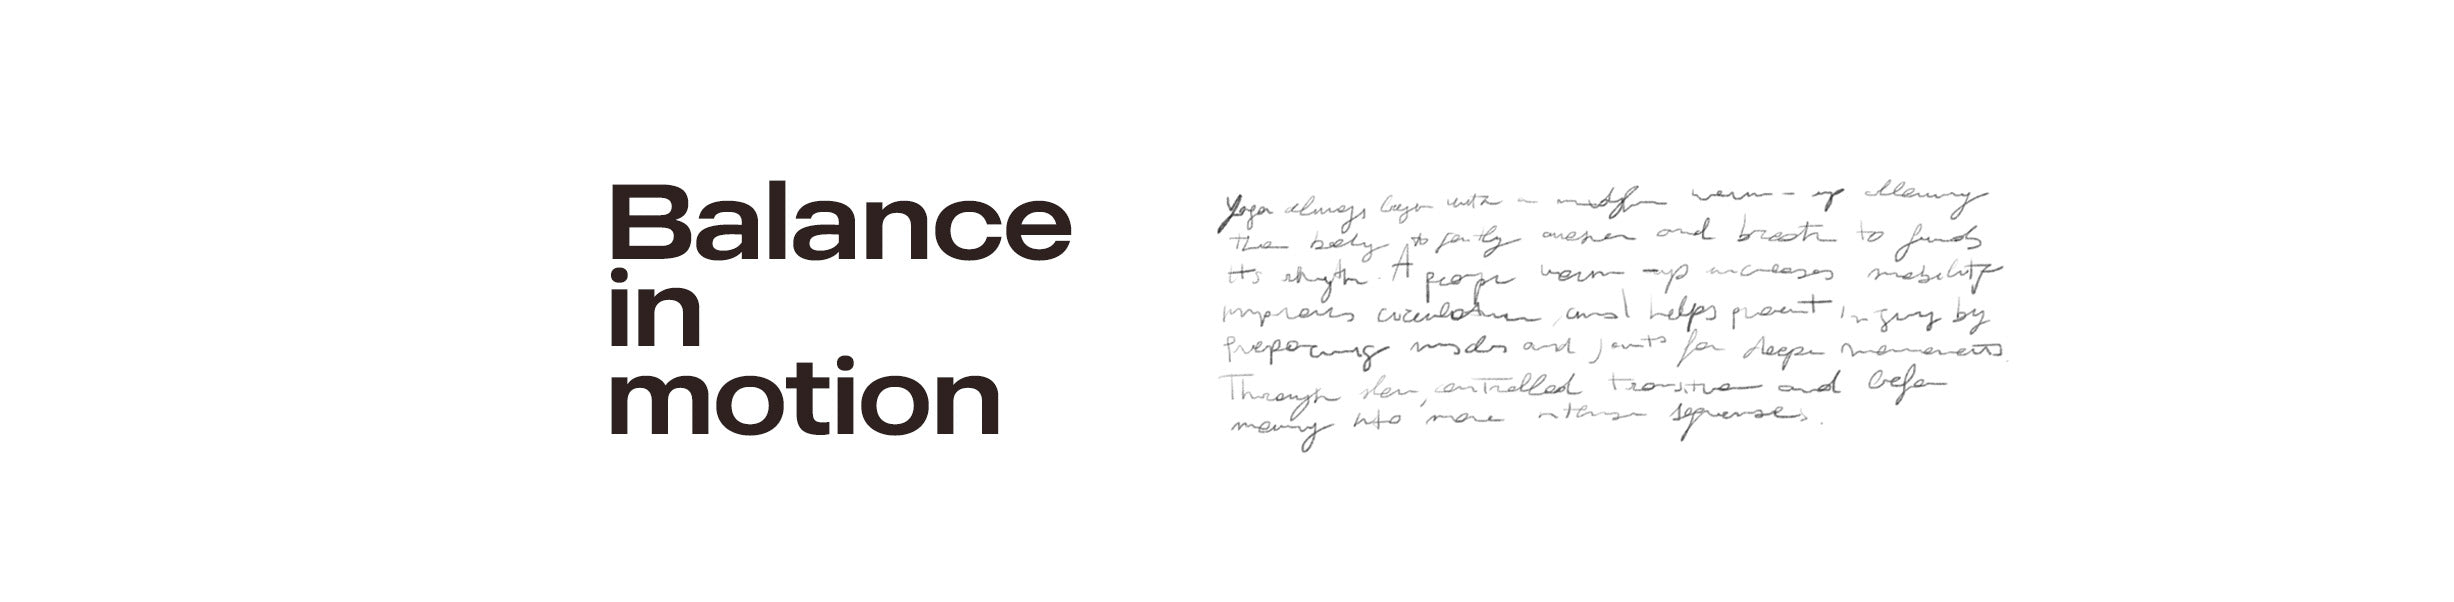 Balance
in
motion
Yoga always begin with a warm-up allowing
the body to gently awaken and breath to funds
its rhythm. A proper warm-up increases mobility
improves circulation, and helps prevent injury by
preparing muscles and joints for deeper movements.
Through slow, controlled transition and before
moving into more intense sequences.